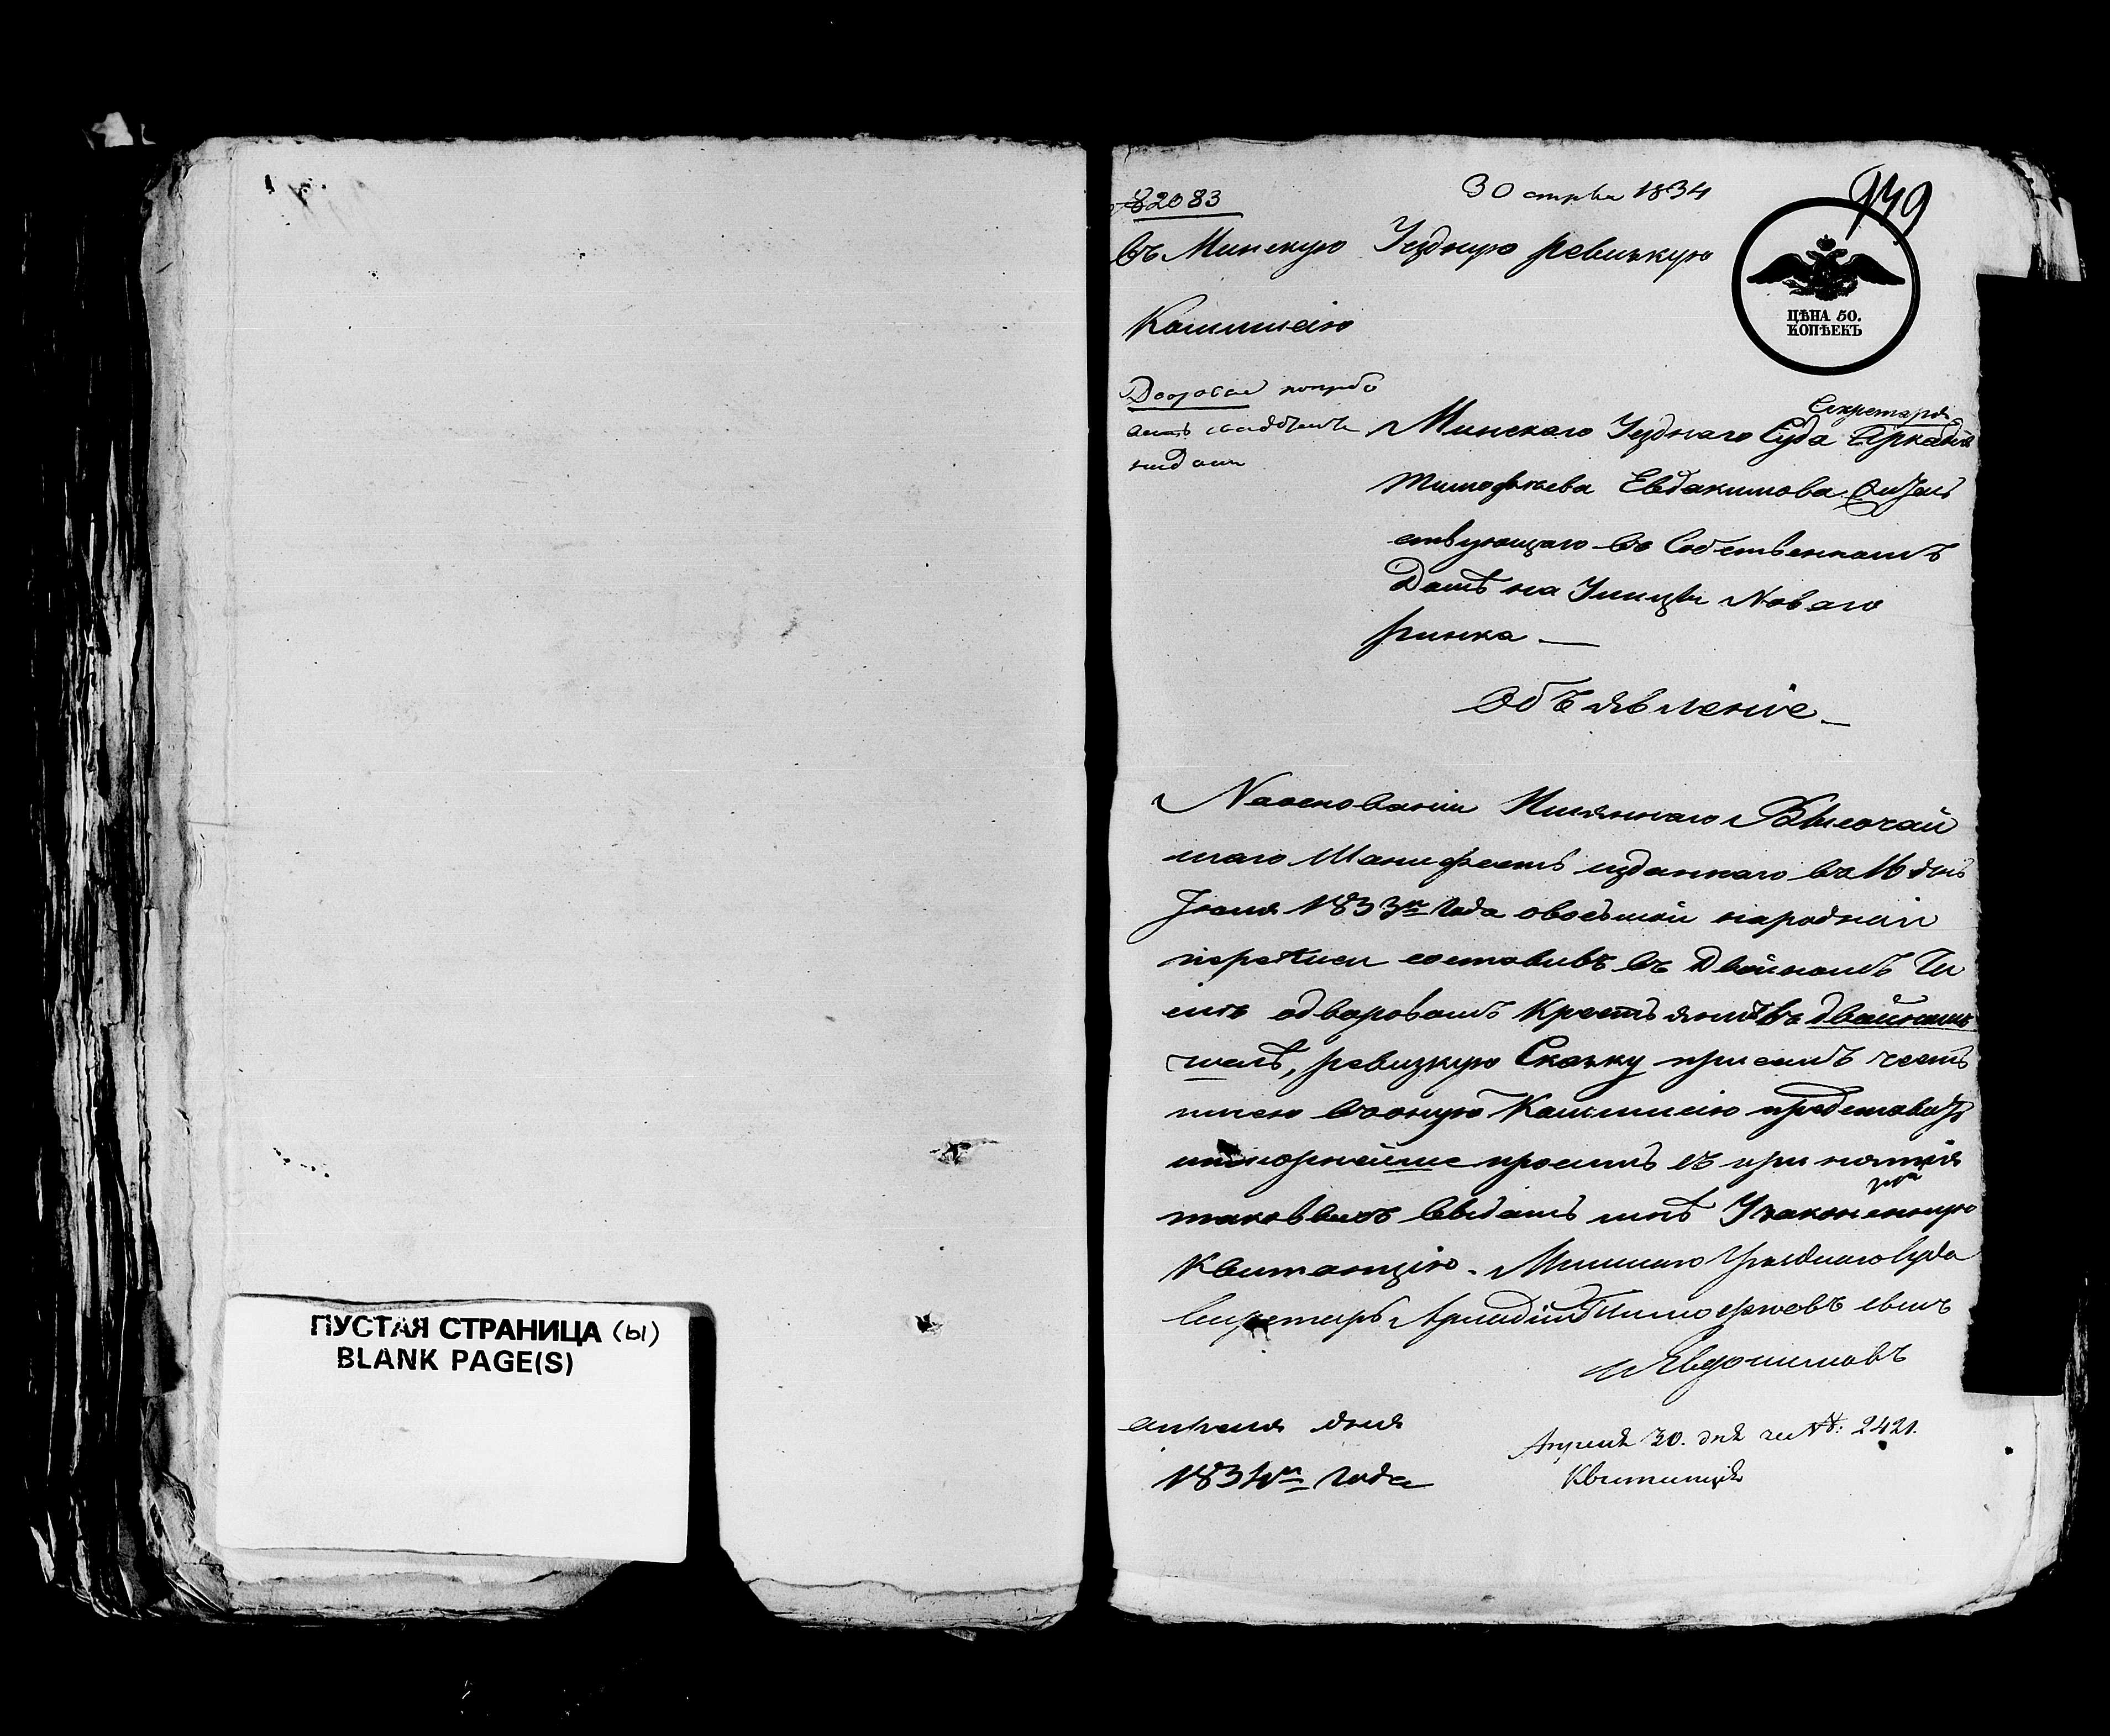 ПУСТАЯ СТРАНИЦА (ы)
BLANK PAGE(S)
82083
30 апреля 1834
949
ЦѢНА 50.
КОПѢЕКЪ
въ Минскую Уездную ревизкую
Коммисію
Секретаря
Минскаго Уезднаго Суда Аркадія
Тимофѣева Евдакимова
ствующаго въ Собственномъ
Домѣ на Улицы Новаго
рынка —
Объявленіе
На основаніи Имяннаго Высочай
шаго Манифестъ изданнаго въ 16 день
Іюня 1833го Года овосьмой народной
переписи составивъ въ Двойномъ Чи
слѣ одворовомъ Крестьянивъ въ двойномъ
числѣ, ревизкую Скаску присемъ честь
имею воную Коммисію представить
ипокорнейше просить въ принятія
таковыхъ выдать мнѣ Узаконенную
Квитанцію. Минскаго Уезднаго Суда
Секретарь Аркадій Тимофѣевъ сынъ
Евдокимовъ
апреля дня
1834го Года
Апреля 30. дня за №: 2421.
Квитанція